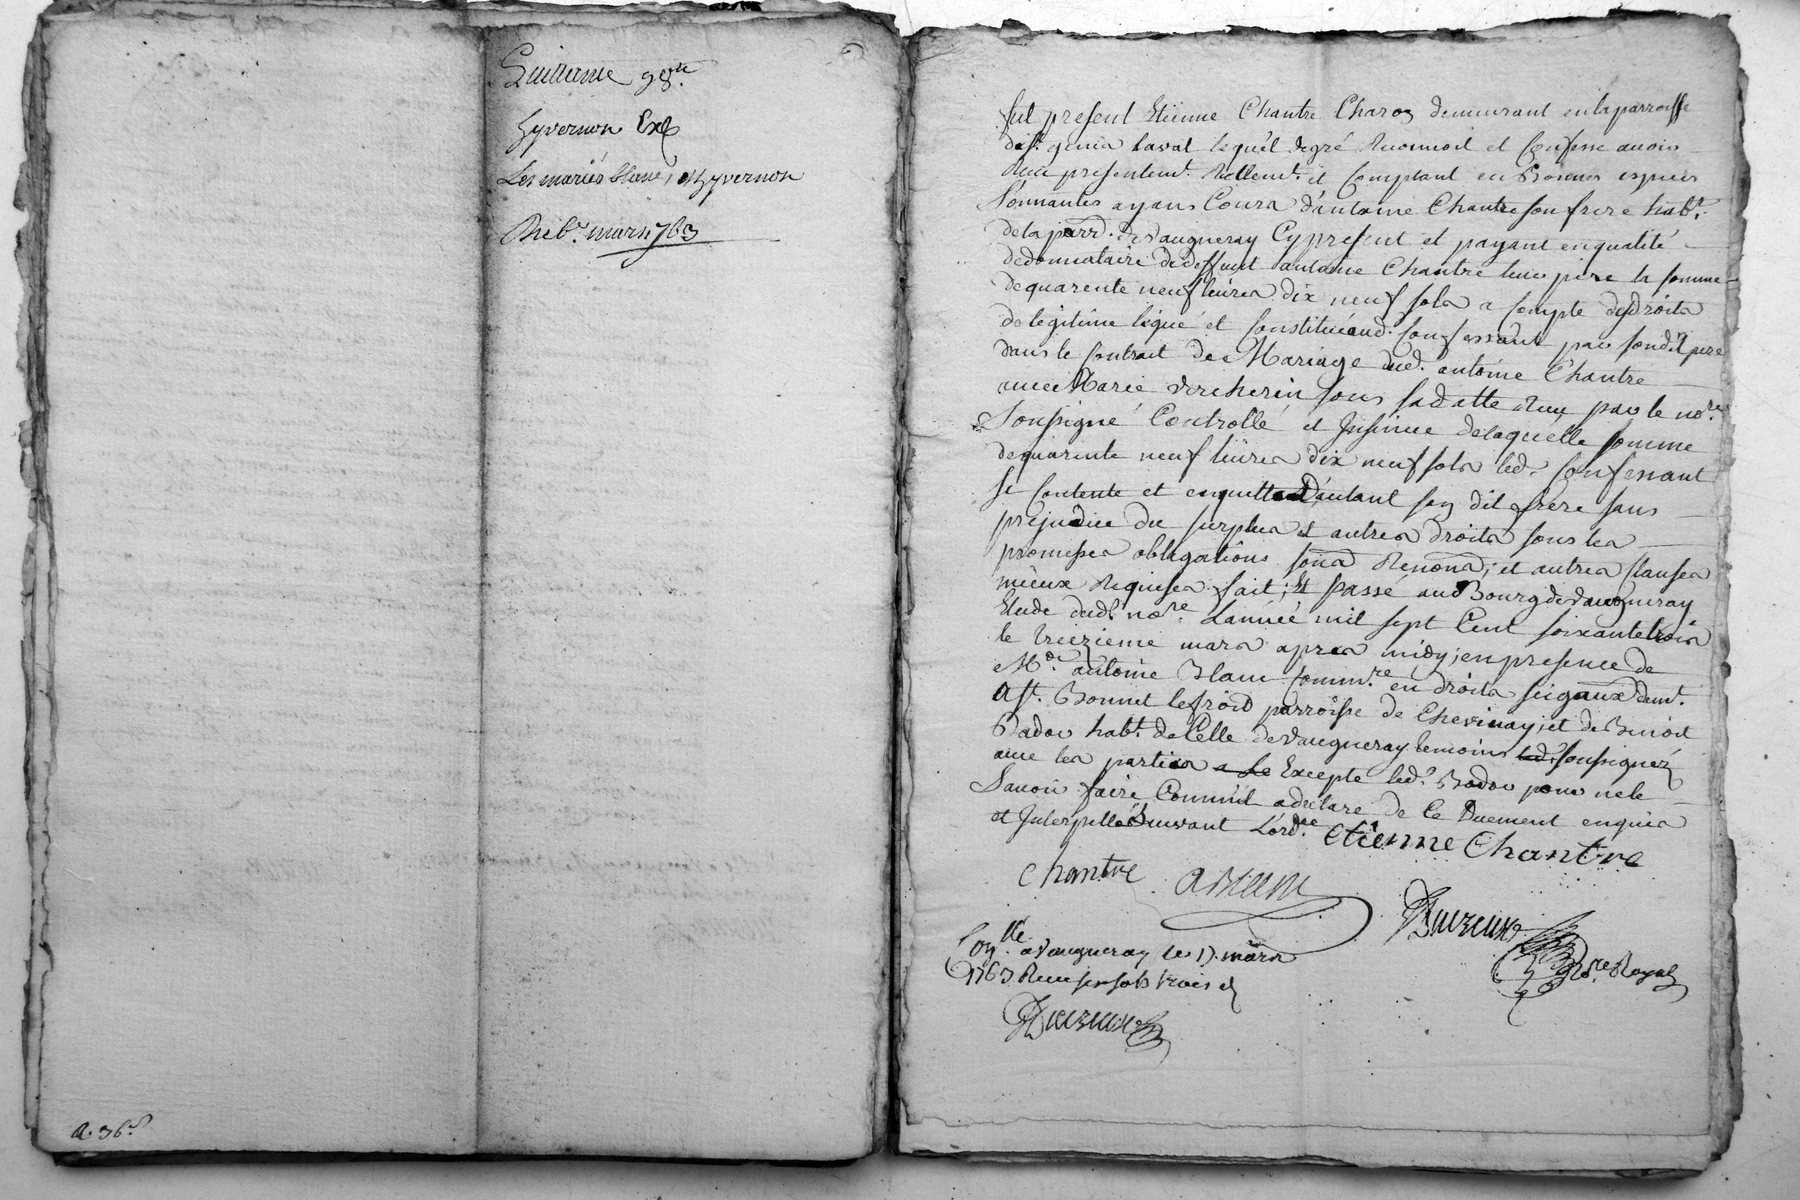 Guillaume
hyvernon Exp
Les mariés blanc, et hyvernon
mars 1763
a. 36 s
fut present Etienne Chantre Charon demeurant en la parroisse
de st. genis laval lequel degré Reconnoit et Confesse avoir
Recu presentemt. Réllemt. et Comptant en Bonnes especes
Sonnantes ayans Cours d'antoine Chantre son frere habt.
de la parr. de Vaugneray Cy present et payant en qualité
de donnataire de deffunt antoine Chantre leur pere la somme
de quarente neuf livres dix neuf sols a Compte des droits
de legitime légué et Constitué aud. Confessant par son dit pere
dans le Contrait de Mariage dud. antoine Chantre
avec Marie vercherin sous sa datte Recu par le nore.
Soussigné Controllé et Insinué de laquelle somme
de quarente neuf livres dix neuf sols led. Confessant
se Contente et en quitte d'autant son dit frere sans
prejudice du surplus et autres droits sous les
promesses obligations soûd Renond; et autres Clauses
mieux Requises fait; Et Passé aud Bourg de Vaugneray
Etude dudt. nore. L'année mil sept Cent soixante trois
le treizieme mars apres midy; en presence de
Me. antoine Blanc Commre. en droits seigaux demt.
a st. Bonnet le froid parroisse de Chevinay; et de Benoit
Badou habt. de Celle de Vaugneray temoins soussignéz
avec les parties Excepte led. Badou pour ne le
Savoir faire Comm'il a declare de Ce Duement enquis
et Interpellé Suivant L'ordce. Etienne Chantre
Chantre
a Vaugneray le 17. mars
1763 Recu six sols trois d
Nore Royal